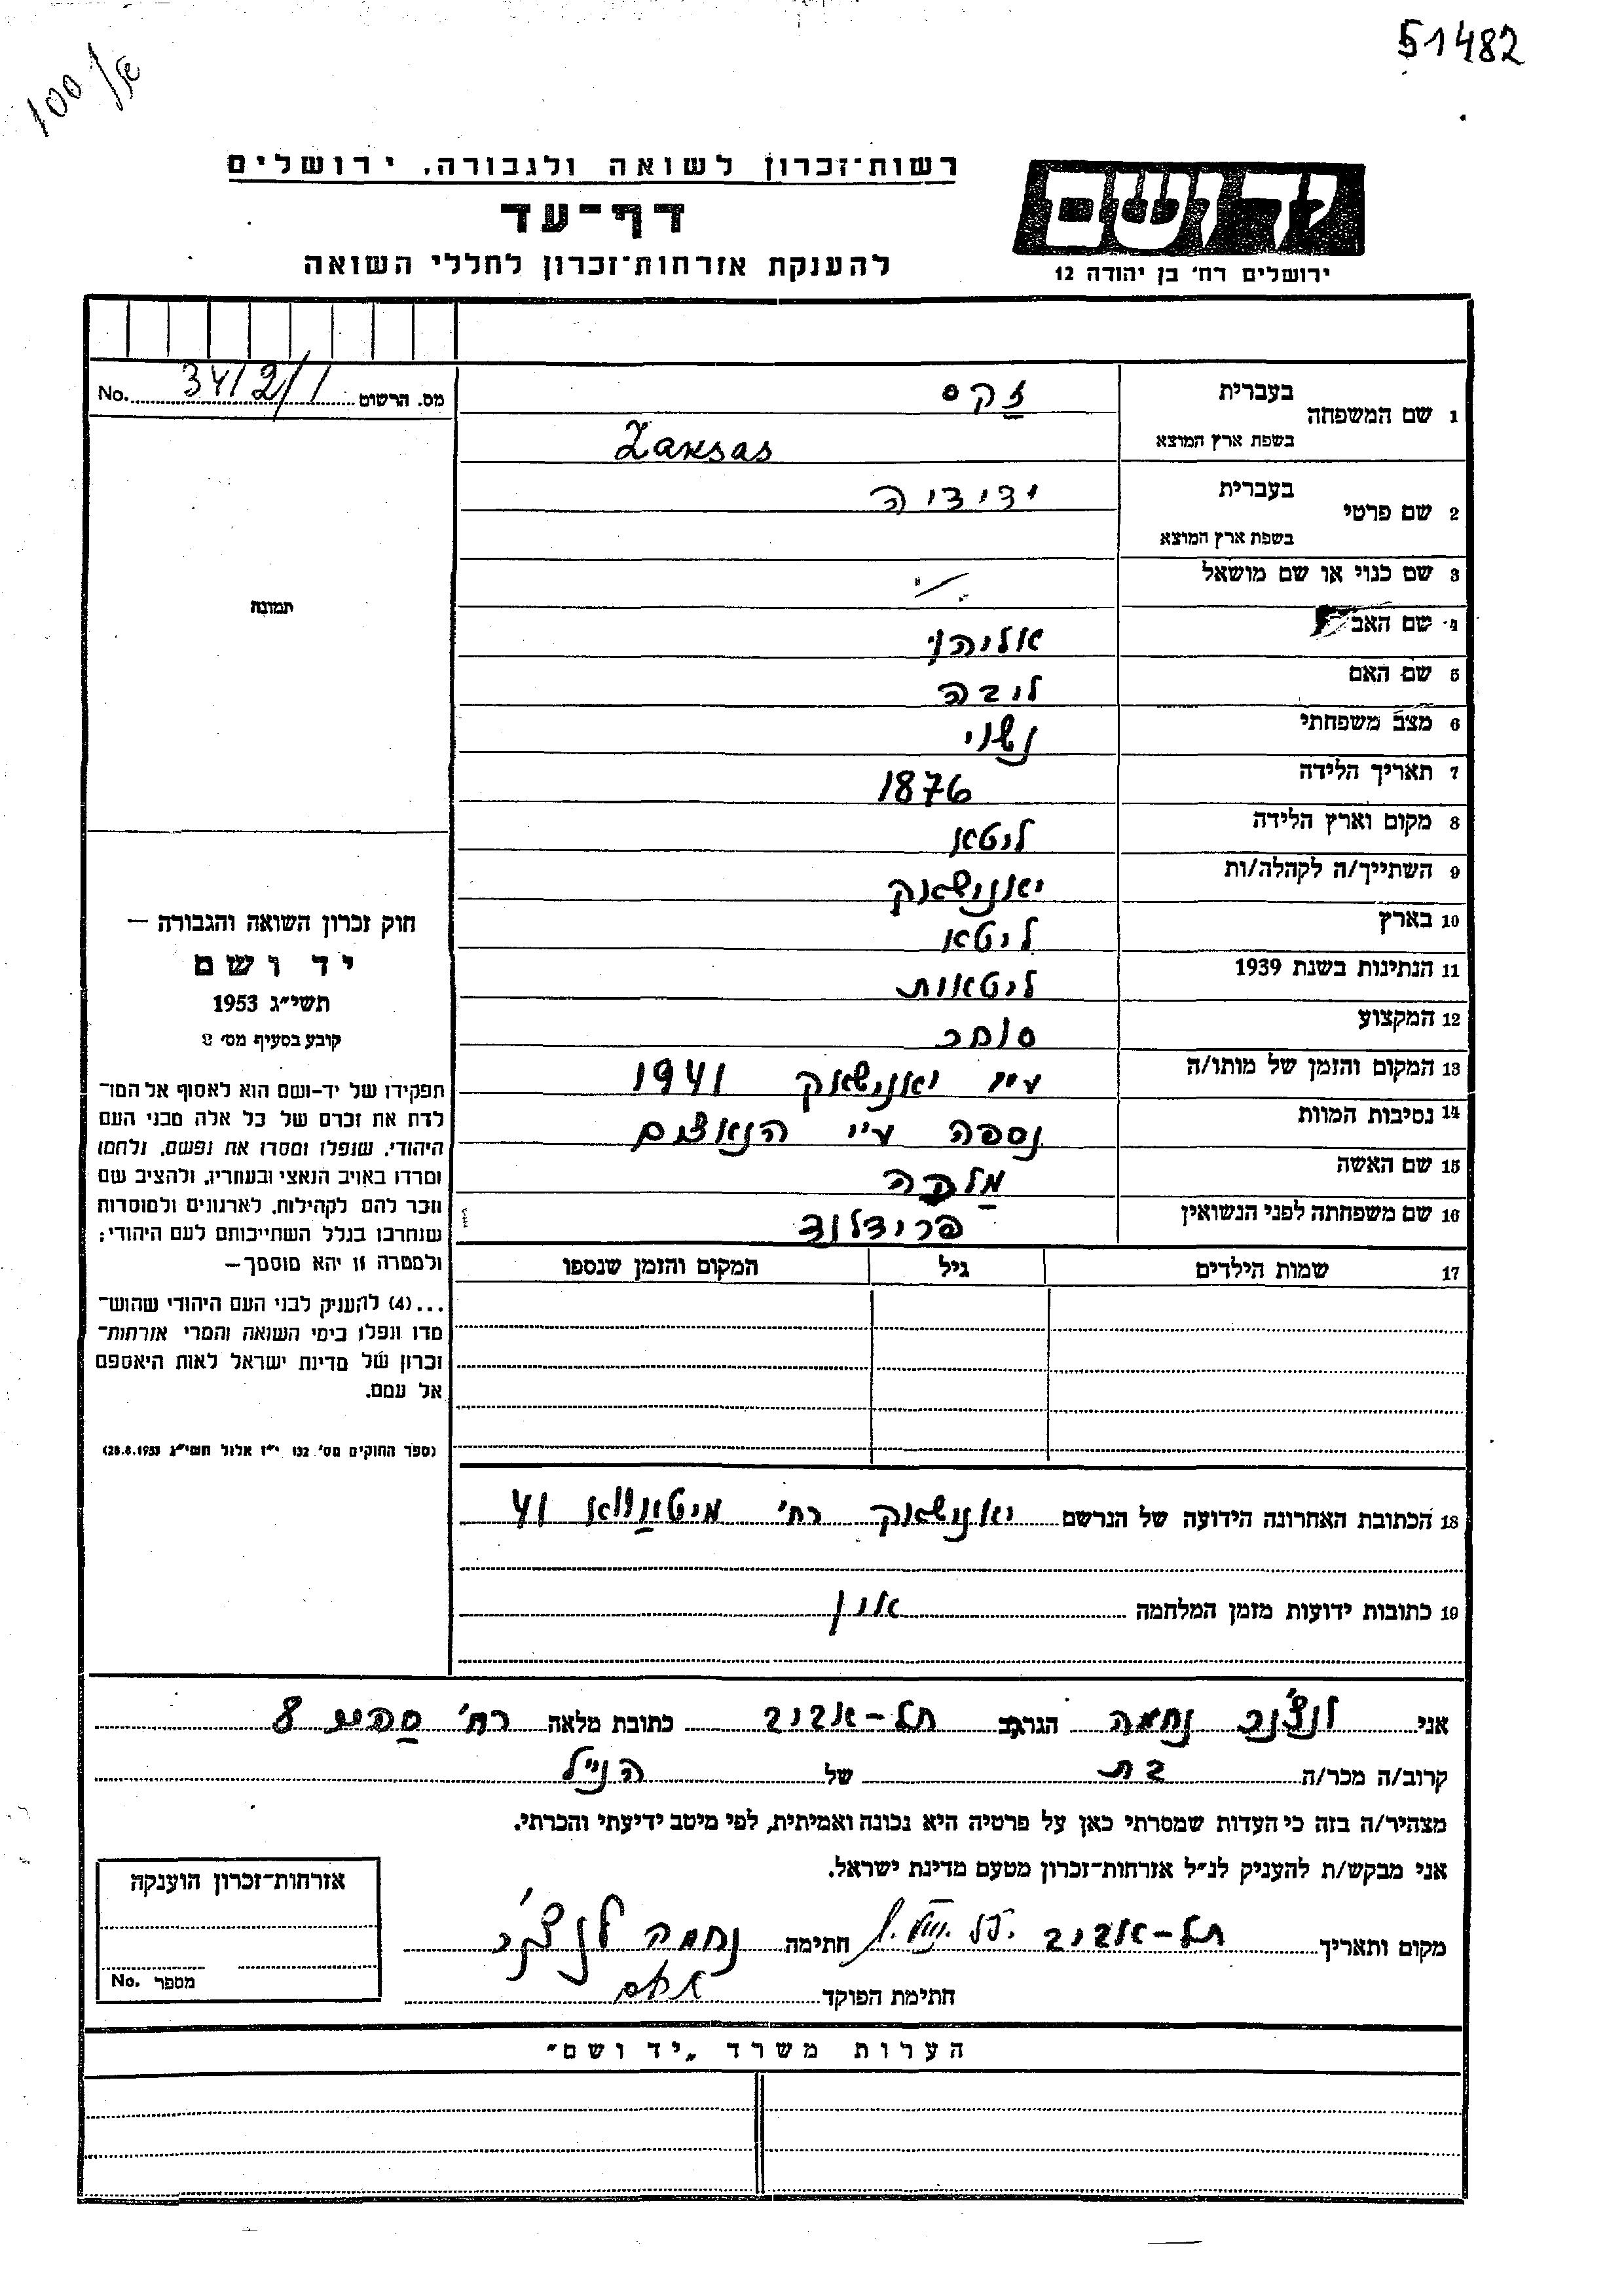 51482
100
רשות־זכרון לשואה ולגבורה, ירושלים
דף־עד
להענקת אזרחות־זכרון לחללי השואה
יד ושם
ירושלים רח׳ בן יהודה 12
מס. הרשום 3412/1 No.
1 שם המשפחה
בעברית זקס
בשפת ארץ המוצא Zaksas
2 שם פרטי
בעברית ידידיה
בשפת ארץ המוצא
3 שם כנוי או שם מושאל
4 שם האב אליהו
5 שם האם ליבה
6 מצב משפחתי נשוי
7 תאריך הלידה 1876
8 מקום וארץ הלידה ליטא
9 השתייך/ה לקהלה/ות יאנישאק
10 בארץ ליטא
11 הנתינות בשנת 1939 ליטאית
12 המקצוע סוחר
13 המקום והזמן של מותו/ה ע״י יאנישאק 1941
14 נסיבות המוות נספה ע״י הנאצים
15 שם האשה מלכה
16 שם משפחתה לפני הנשואין פרידלנד
17 שמות הילדים גיל המקום והזמן שנספו
תמונה
חוק זכרון השואה והגבורה —
יד ושם
תשי״ג 1953
קובע בסעיף מס׳ 2
תפקידו של יד־ושם הוא לאסוף אל המו־
לדת את זכרם של כל אלה מבני העם
היהודי, שנפלו ומסרו את נפשם, נלחמו
ומרדו באויב הנאצי ובעוזריו, ולהציב שם
וזכר להם לקהילות, לארגונים ולמוסדות
שנחרבו בגלל השתייכותם לעם היהודי;
ולמטרה זו יהא מוסמך—
...(4) להעניק לבני העם היהודי שהוש־
מדו ונפלו בימי השואה והמרי אזרחות־
זכרון של מדינת ישראל לאות היאספם
אל עמם.
(ספר החוקים מס׳ 132 י״ז אלול תשי״ג 28.8.1953)
18 הכתובת האחרונה הידועה של הנרשם יאנישאק רח׳ 41
19 כתובות ידועות מזמן המלחמה אין
אני לנצ׳נר נחמה הגר/ב תל-אביב כתובת מלאה רח׳ 8
קרוב/ה מכר/ה בת של הנ״ל
מצהיר/ה בזה כי העדות שמסרתי כאן על פרטיה היא נכונה ואמיתית, לפי מיטב ידיעתי והכרתי.
אני מבקש/ת להעניק לנ״ל אזרחות־זכרון מטעם מדינת ישראל.
מקום ותאריך תל-אביב חתימה נחמה לנצ׳נר
חתימת הפוקד
אזרחות־זכרון הוענקה
מספר No.
הערות משרד „יד ושם״